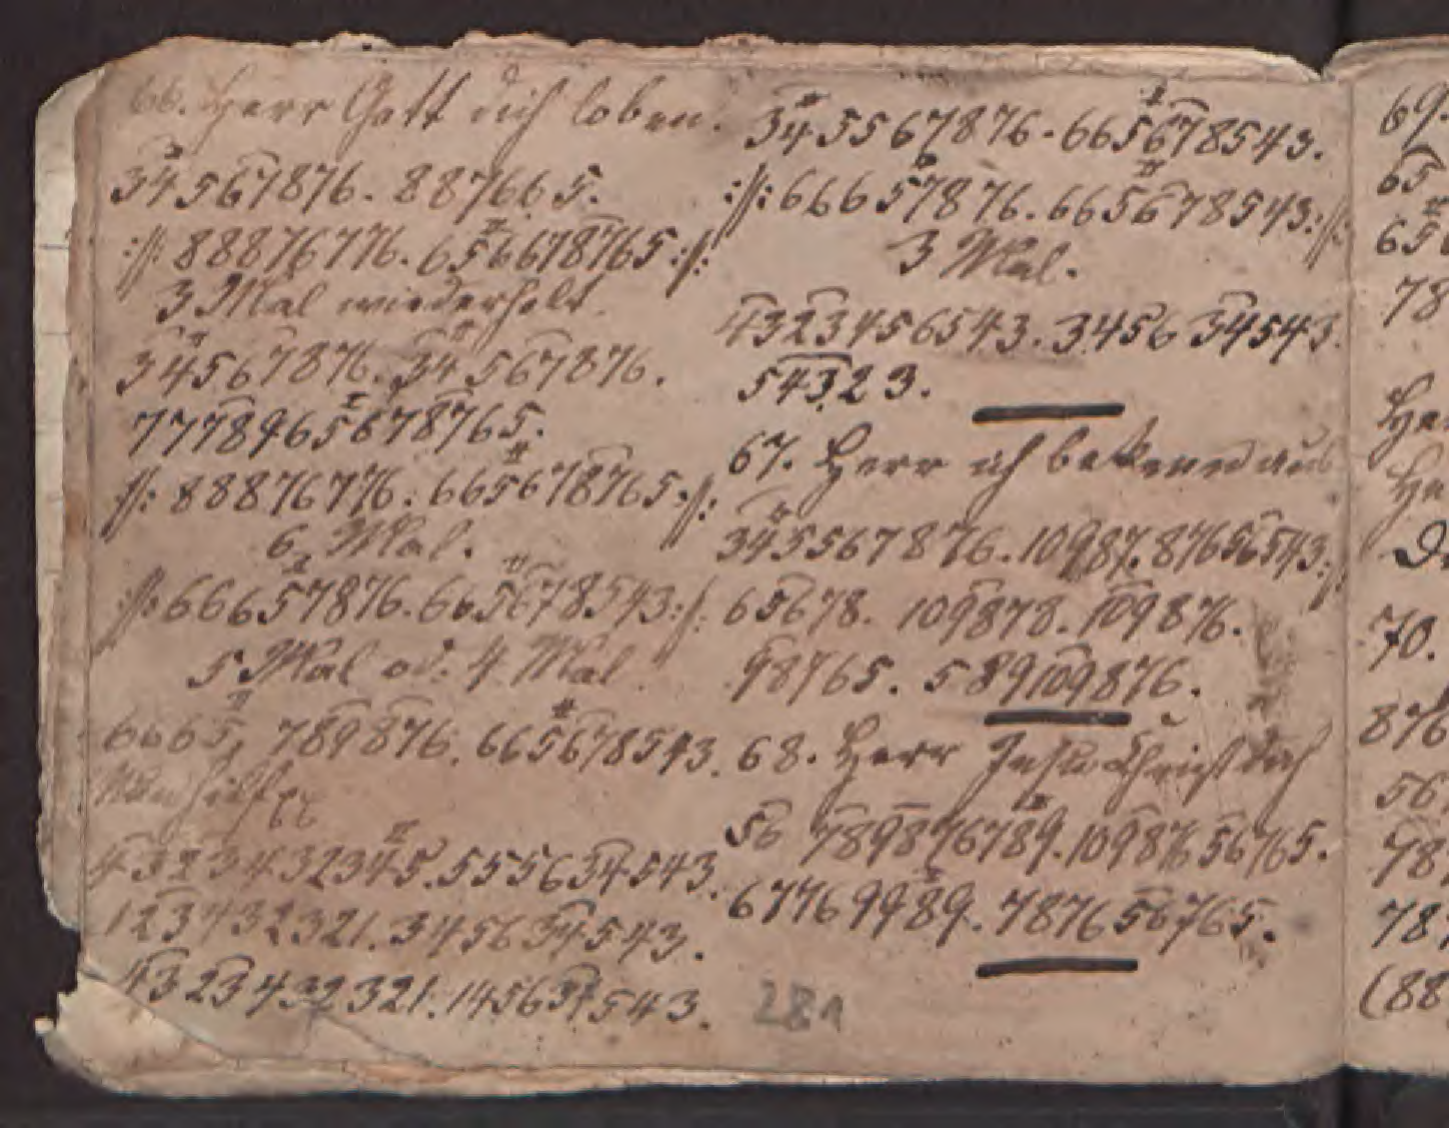 66. Herr Gott dich loben.
34567876. 887665.
://: 88876776. 656678765 ://:
3 Mal wiederholt.
34567876. 34567876.
77789655678765.
//: 88876776. 665678765 ://:
6 Mal.
://: 66657876. 665678543 ://:
5 Mal od: 4 Mal
6665, 789876. 665678543.
Nun hilf
4323432345. 555634543.
123432321. 345634543.
4323432321. 145634543.
345567876. 665678543.
://: 66657876. 665678543 ://:
3 Mal.
43234566543. 3456 34543.
54323.
67. Herr ich bekenn aus
345567876. 10987. 87656543 ://:
65678. 109878. 109876.
98765. 589109876.
68. Herr Jesu Christ dich
56 789876789. 109876 56765.
67769989. 787656765.
281
69.
65
65
78
70.
876
56
78
787
(88